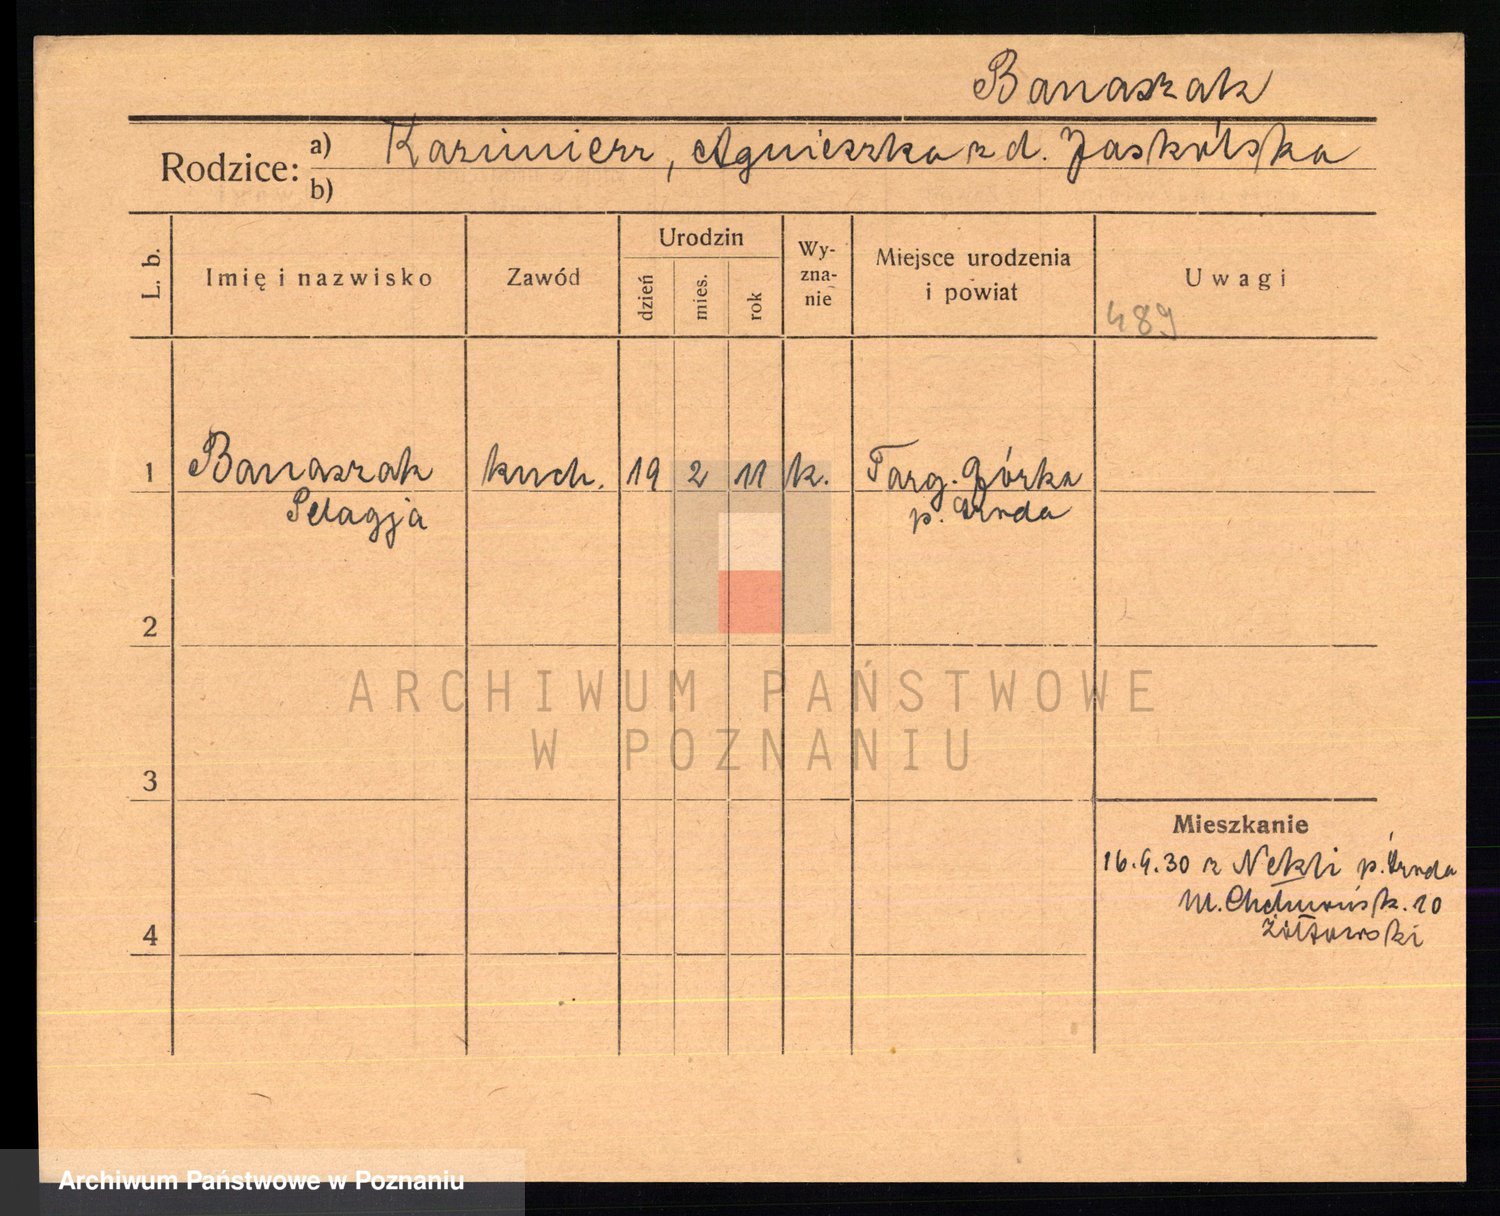 Banaszak
Rodzice: a) Kazimierz, Agnieszka z d. Jaskólska
b)
L. b.
Imię i nazwisko
Zawód
Urodzin
dzień
mies.
rok
Wy-
zna-
nie
Miejsce urodzenia
i powiat
Uwagi
489
1 Banaszak kuch. 19 2 11 k. Targ. Górka
Pelagja p. Środa
2
3
Mieszkanie
16.9.30 z Nekli p. Środa
10
Żółtowski
4
ARCHIWUM PAŃSTWOWE
W POZNANIU
Archiwum Państwowe w Poznaniu